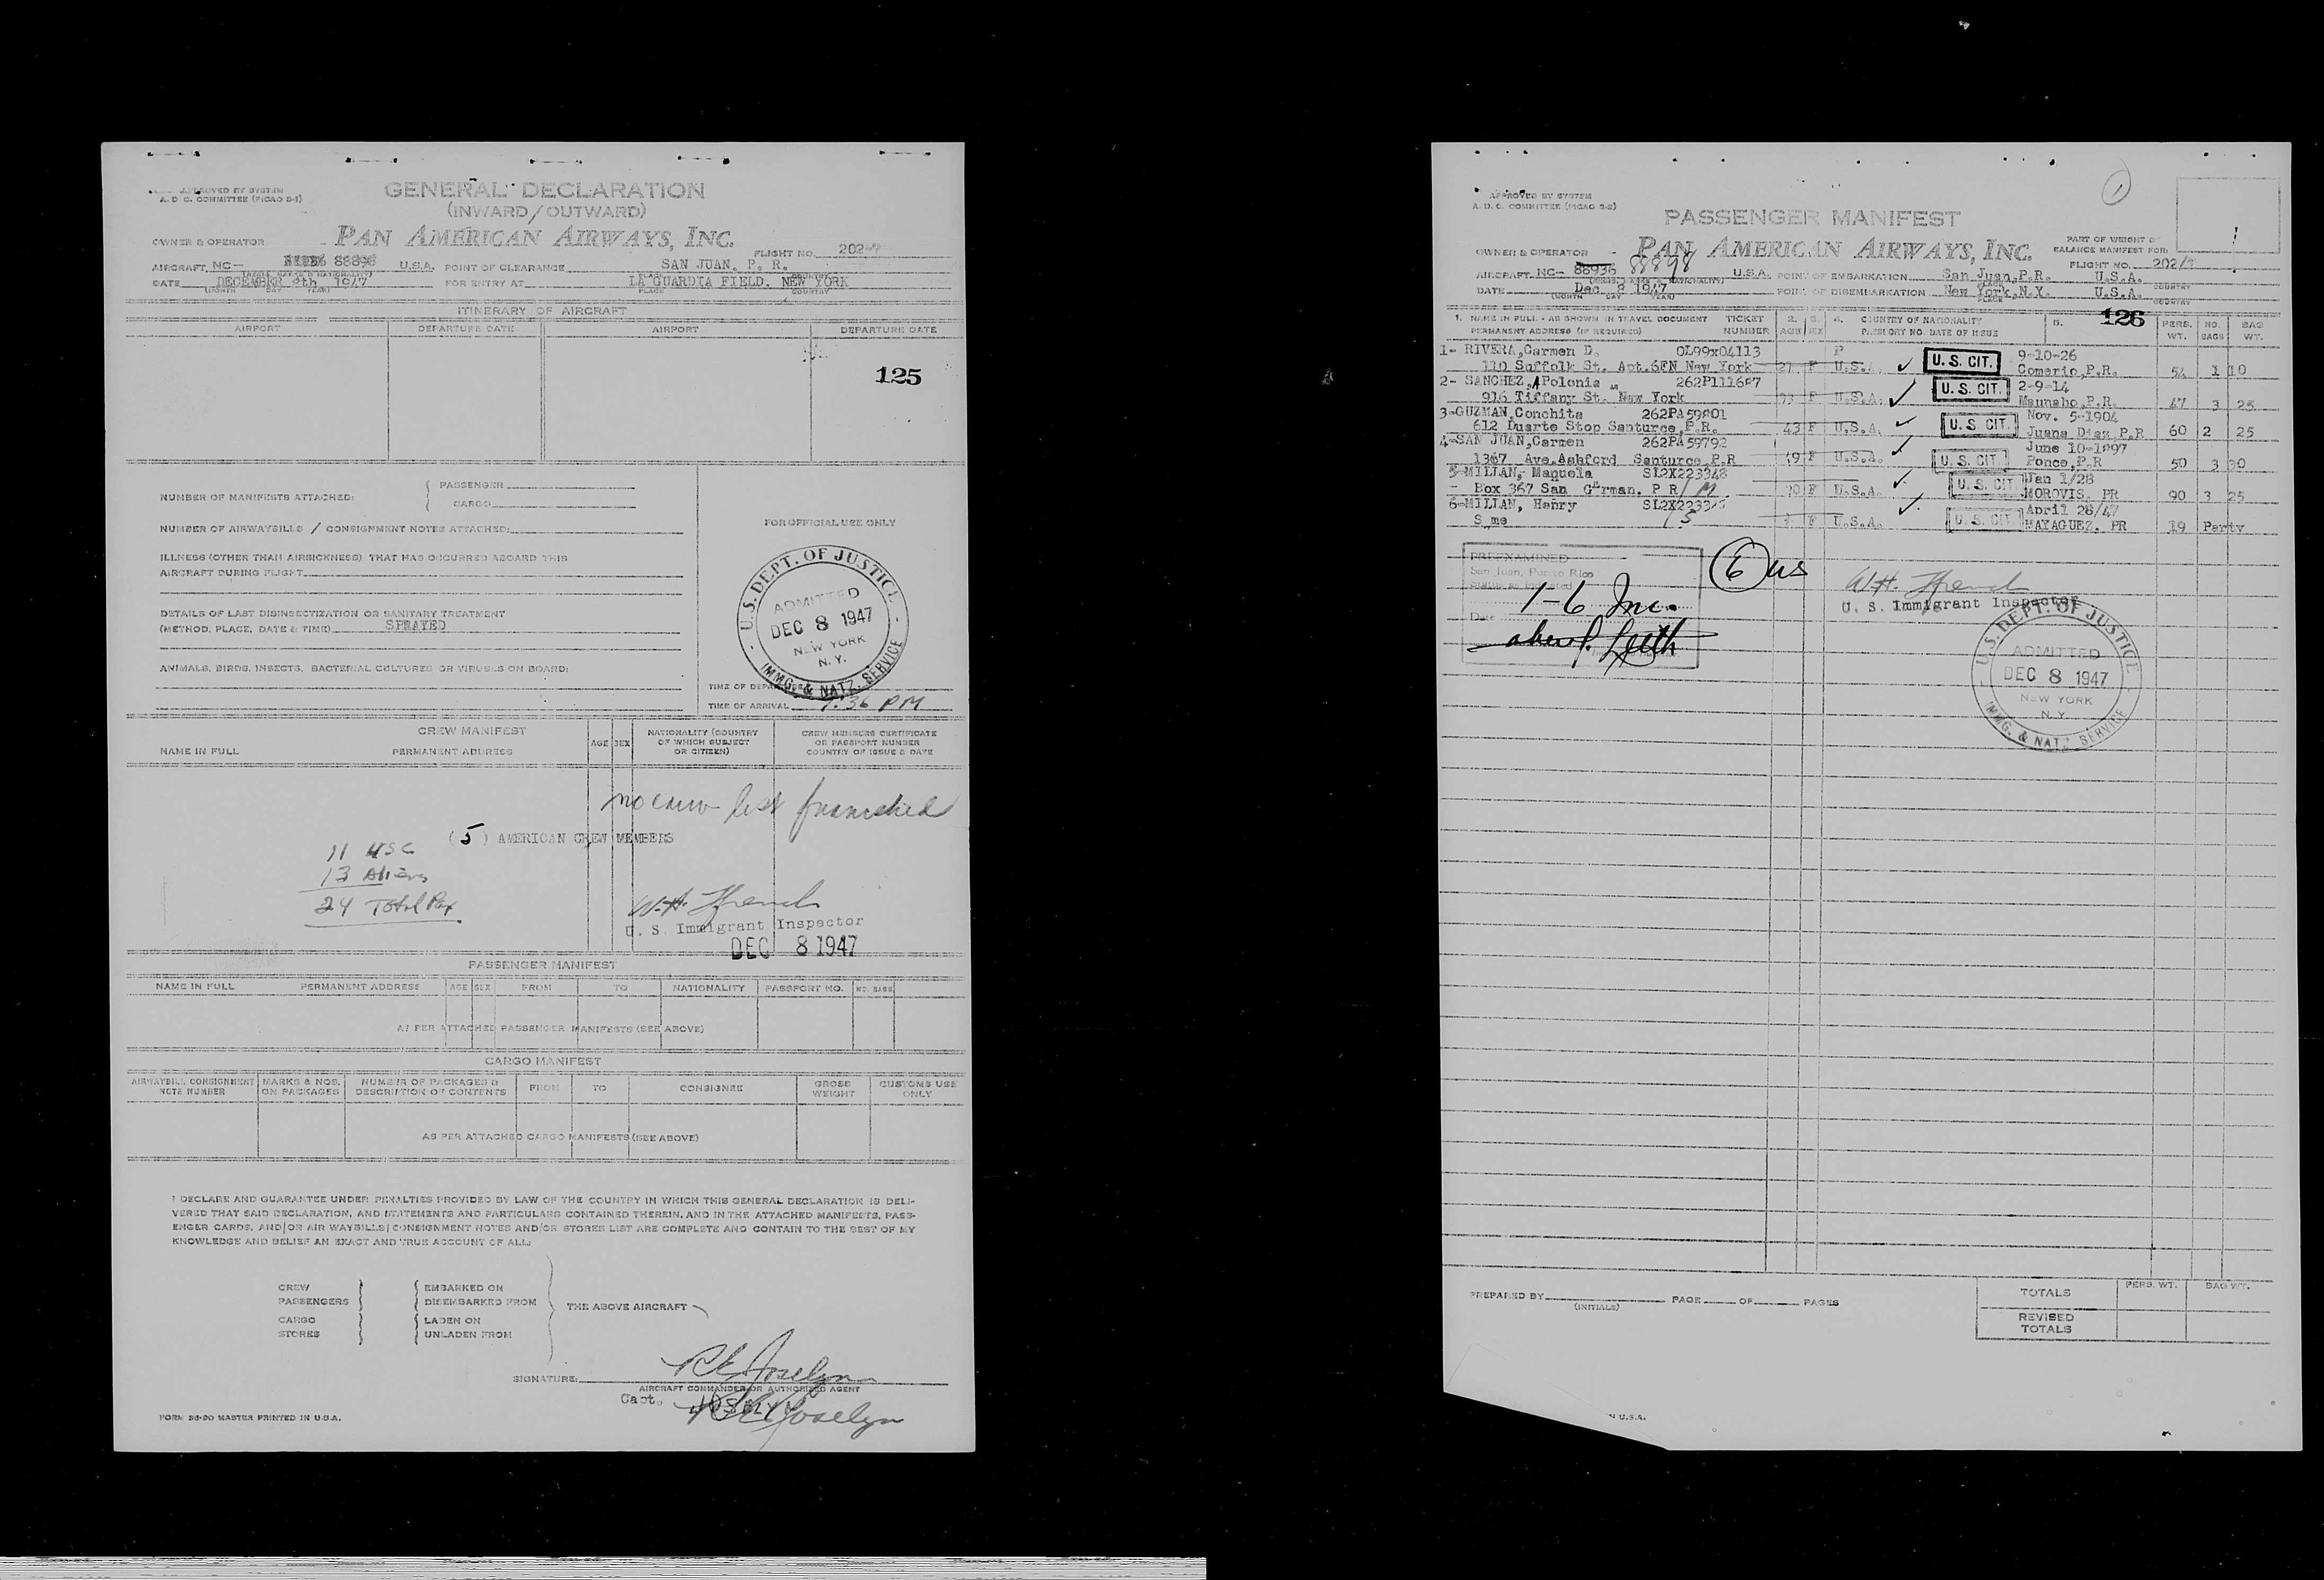 APPROVED BY SYSTEM
A. D. C. COMMITTEE (PICAO S-1)
GENERAL DECLARATION
(INWARD/OUTWARD)
OWNER & OPERATOR
PAN AMERICAN AIRWAYS, INC.
FLIGHT NO. 202
AIRCRAFT NC- 88898 U.S.A. POINT OF CLEARANCE SAN JUAN, P. R.
PLACE COUNTRY
DATE DECEMBER 8th 1947 FOR ENTRY AT LA GUARDIA FIELD. NEW YORK
(MONTH DAY YEAR) PLACE COUNTRY
ITINERARY OF AIRCRAFT
AIRPORT DEPARTURE DATE AIRPORT DEPARTURE DATE
125
NUMBER OF MANIFESTS ATTACHED: { PASSENGER
CARGO
NUMBER OF AIRWAYBILLS / CONSIGNMENT NOTES ATTACHED:
FOR OFFICIAL USE ONLY
ILLNESS (OTHER THAN AIRSICKNESS) THAT HAS OCCURRED ABOARD THIS
AIRCRAFT DURING FLIGHT
DETAILS OF LAST DISINSECTIZATION OR SANITARY TREATMENT
(METHOD, PLACE, DATE & TIME) SPRAYED
ANIMALS, BIRDS, INSECTS, BACTERIAL CULTURES OR VIRUSES ON BOARD:
U.S. DEPT. OF JUSTICE
ADMITTED
DEC 8 1947
NEW YORK
N. Y.
IMMG. & NATZ. SERVICE
TIME OF DEPARTURE
TIME OF ARRIVAL 36 PM
CREW MANIFEST
NAME IN FULL PERMANENT ADDRESS AGE SEX
NATIONALITY (COUNTRY
OF WHICH SUBJECT
OR CITIZEN)
CREW MEMBERS CERTIFICATE
OR PASSPORT NUMBER
COUNTRY OF ISSUE & DATE
no crew list furnished
(5) AMERICAN CREW MEMBERS
11 USC
13 Aliens
24 Total Pax
W.H. French
U. S. Immigrant Inspector
DEC 8 1947
PASSENGER MANIFEST
NAME IN FULL PERMANENT ADDRESS AGE SEX FROM TO NATIONALITY PASSPORT NO. NO. BAGS
AS PER ATTACHED PASSENGER MANIFESTS (SEE ABOVE)
CARGO MANIFEST
AIRWAYBILL CONSIGNMENT
NOTE NUMBER
MARKS & NOS.
ON PACKAGES
NUMBER OF PACKAGES &
DESCRIPTION OF CONTENTS
FROM TO CONSIGNEE
GROSS
WEIGHT
CUSTOMS USE
ONLY
AS PER ATTACHED CARGO MANIFESTS (SEE ABOVE)
I DECLARE AND GUARANTEE UNDER PENALTIES PROVIDED BY LAW OF THE COUNTRY IN WHICH THIS GENERAL DECLARATION IS DELI-
VERED THAT SAID DECLARATION, AND STATEMENTS AND PARTICULARS CONTAINED THEREIN, AND IN THE ATTACHED MANIFESTS, PASS-
ENGER CARDS, AND/OR AIR WAYBILLS/CONSIGNMENT NOTES AND/OR STORES LIST ARE COMPLETE AND CONTAIN TO THE BEST OF MY
KNOWLEDGE AND BELIEF AN EXACT AND TRUE ACCOUNT OF ALL:
CREW EMBARKED ON
PASSENGERS DISEMBARKED FROM THE ABOVE AIRCRAFT
CARGO LADEN ON
STORES UNLADEN FROM
SIGNATURE: R E Joselyn
AIRCRAFT COMMANDER OR AUTHORIZED AGENT
Capt. JOSELYN
R E Joselyn
FORM 36-20 MASTER PRINTED IN U.S.A.
1
APPROVED BY SYSTEM
A. D. C. COMMITTEE (PICAO S-2)
PASSENGER MANIFEST
OWNER & OPERATOR
PAN AMERICAN AIRWAYS, INC.
PART OF WEIGHT &
BALANCE MANIFEST FOR:
FLIGHT NO. 202/
AIRCRAFT NC- 88936 88898 U.S.A. POINT OF EMBARKATION San Juan,P.R. U.S.A.
PLACE COUNTRY
DATE Dec 8 1947 POINT OF DISEMBARKATION New York,N.Y. U.S.A.
(MONTH DAY YEAR) PLACE COUNTRY
126
1. NAME IN FULL - AS SHOWN IN TRAVEL DOCUMENT TICKET 2. 3. 4. COUNTRY OF NATIONALITY 5. PERS. NO. BAG
PERMANENT ADDRESS (IF REQUIRED) NUMBER AGE SEX PASSPORT NO. DATE OF ISSUE WT. BAGS WT.
1- RIVERA,Carmen D. OL99x04113 P U. S. CIT. 9-10-26
110 Suffolk St. Apt.6FN New York 21 F U.S.A. Comerio,P.R. 54 1 10
2- SANCHEZ,APolonia 262P111687 U. S. CIT. 2-9-14
916 Tiffany St. New York 33 F U.S.A. Maunabo,P.R. 47 3 25
3-GUZMAN,Conchita 262PA59801 U. S. CIT. Nov. 5-1904
612 Duarte Stop Santurce,P.R. 43 F U.S.A. Juana Diaz,P.R 60 2 25
4-SAN JUAN,Carmen 262PA59792 U. S. CIT. June 10-1897
1367 Ave.Ashford Santurce,P.R F U.S.A. Ponce,P.R 50 3 30
5-MILLAN, Manuela SL2X223348 U. S. CIT. Jan 1/28
- Box 367 San German, P R/ M 20 F U.S.A. MOROVIS, PR 90 3 25
6-MILLAN, Henry U. S. CIT. April 28/47
Same F U.S.A. MAYAGUEZ, PR 19 Party
PREEXAMINED
San Juan, Puerto Rico
Status as indicated
1-6 Inc.
Date
6 us
W.H. French
U. S. Immigrant Inspector
U.S. DEPT. OF JUSTICE
ADMITTED
DEC 8 1947
NEW YORK
N.Y.
IMMG. & NATZ. SERVICE
PREPARED BY PAGE OF PAGES
(INITIALS)
PERS. WT. BAG WT.
TOTALS
REVISED
TOTALS
U.S.A.